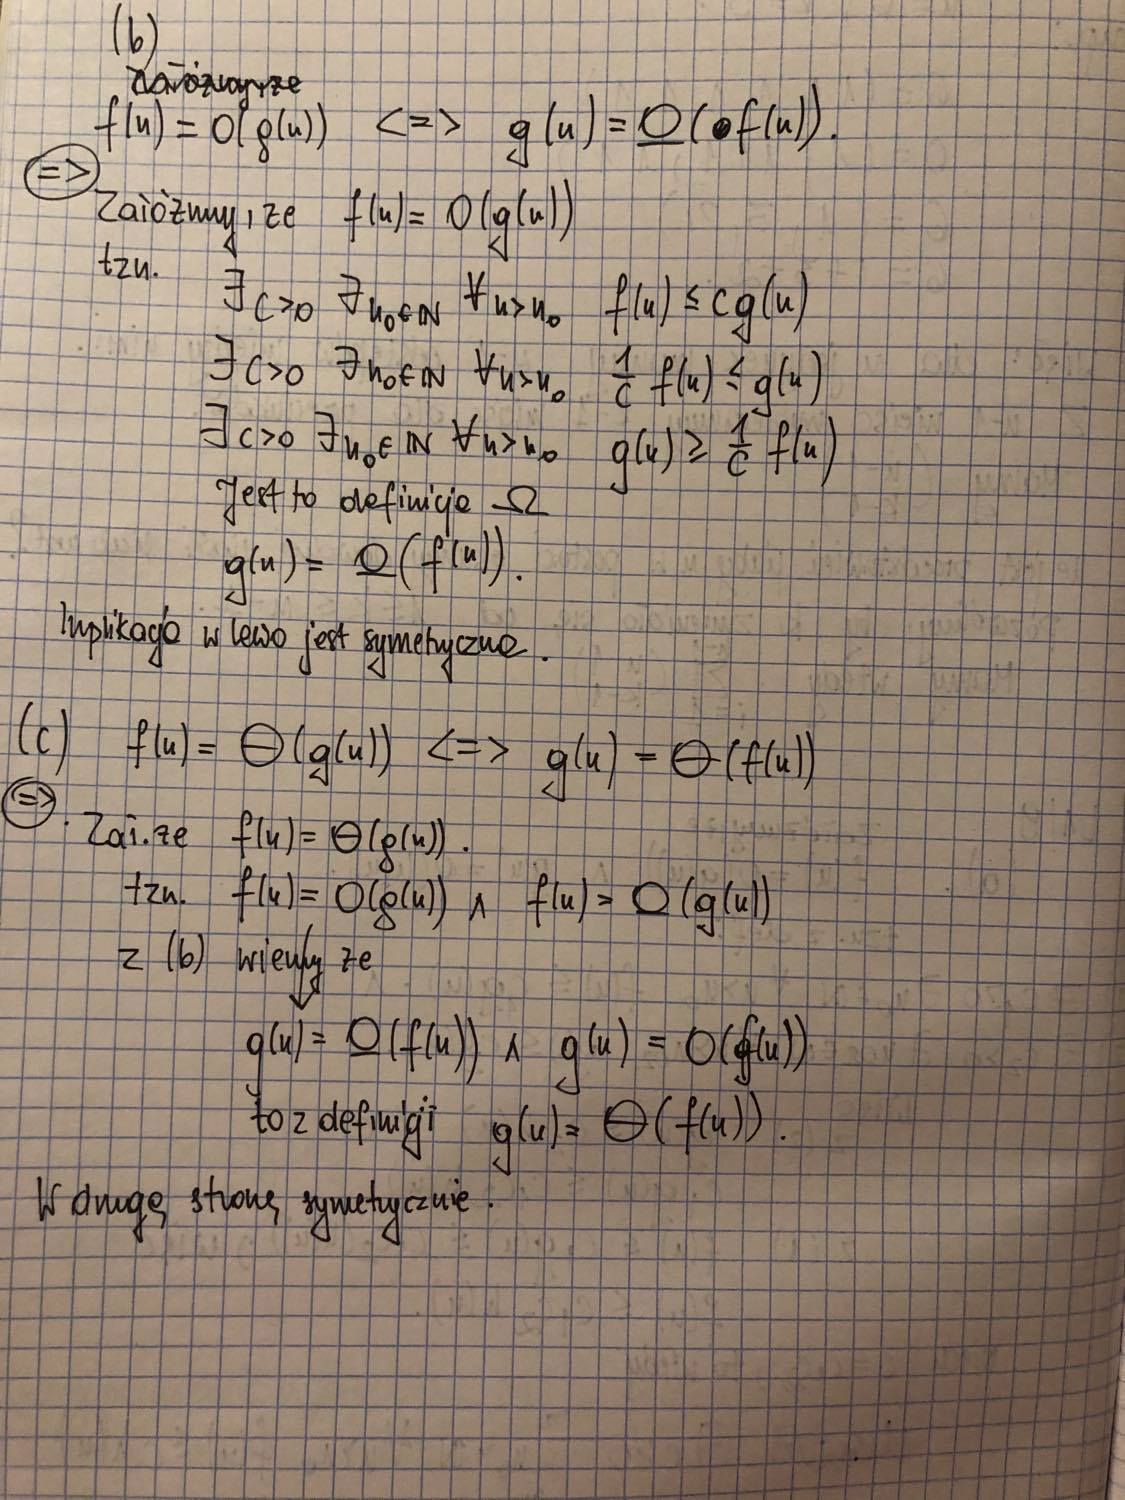 (b)
Załóżmy, że
f(n) = O(g(n)) <=> g(n) = Ω(f(n)).
=>
Załóżmy, że f(n) = O(g(n))
tzn.
∃c>0 ∃n₀∈ℕ ∀n>n₀ f(n) ≤ c g(n)
∃c>0 ∃n₀∈ℕ ∀n>n₀ 1/c f(n) ≤ g(n)
∃c>0 ∃n₀∈ℕ ∀n>n₀ g(n) ≥ 1/c f(n)
Jest to definicja Ω
g(n) = Ω(f(n)).
Implikacja w lewo jest symetryczna.
(c) f(n) = Θ(g(n)) <=> g(n) = Θ(f(n))
=>
Zał. że f(n) = Θ(g(n)).
tzn. f(n) = O(g(n)) ∧ f(n) = Ω(g(n))
z (b) wiemy że
g(n) = Ω(f(n)) ∧ g(n) = O(f(n))
to z definicji g(n) = Θ(f(n)).
W drugą stronę symetrycznie.